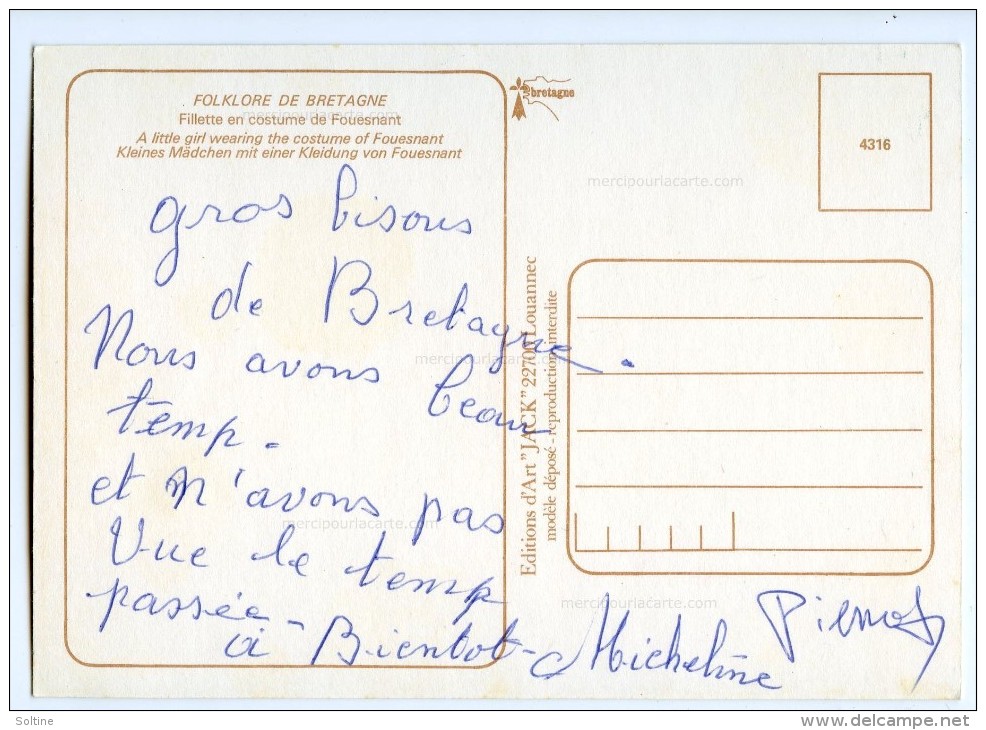 FOLKLORE DE BRETAGNE
Fillette en costume de Fouesnant
A little girl wearing the costume of Fouesnant
Kleines Mädchen mit einer Kleidung von Fouesnant
gros bisous
de Bretagne.
Nous avons beau
temp.
et n'avons pas
Vue le temp
passée -
a Bientot -
Micheline
Pierrot
bretagne
4316
Editions d'Art "JACK" 22700 Louannec
modèle déposé - reproduction interdite
mercipourlacarte.com
mercipourlacarte.com
mercipourlacarte.com
mercipourlacarte.com
mercipourlacarte.com
Soltine
http://www.delcampe.net